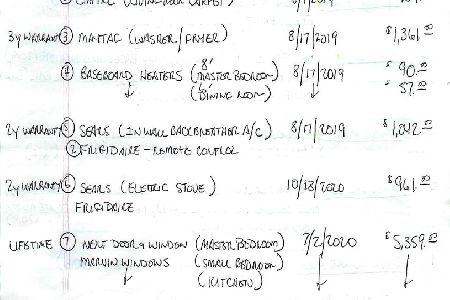 3y WARRANTY ③ MAYTAG (WASHER/DRYER) 8/17/2019 $1,361.00
④ BASEBOARD HEATERS (8' MASTER BEDROOM) 8/17/2019 $90.00
↓ (6' DINING ROOM) ↓ $57.00
2y WARRANTY ⑤ SEARS (IN WALL A/C) 8/17/2019 $1,042.00
② FRIGIDAIRE - REMOTE CONTROL
2y WARRANTY ⑥ SEARS (ELECTRIC STOVE) 10/13/2020 $961.00
FRIGIDAIRE
LIFETIME ⑦ NEXT DOOR & WINDOW (MASTER BEDROOM) 7/2/2020 $5,359.00
MERVIN WINDOWS (SMALL BEDROOM)
↓ (KITCHEN) ↓ ↓